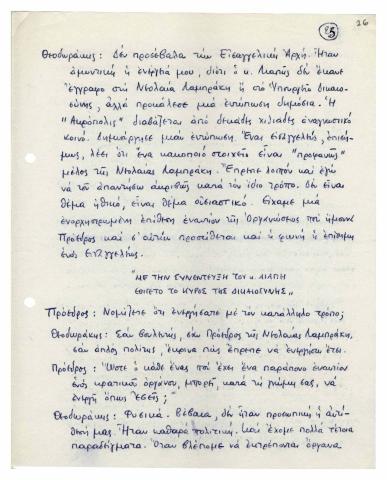 85
26
Θεοδωράκης: Δέν προσέβαλα τήν Εἰσαγγελική Ἀρχή. Ἦταν
ἀμυντική ἡ ἐνέργειά μου, διότι ὁ κ. Λιαπῆς δέν ἔκανε
ἔγγραφο στή Νεολαία Λαμπράκη ἤ στό Ὑπουργεῖο Δικαιο-
σύνης, ἀλλά προκάλεσε μιά ἐντύπωση δημόσια. Ἡ
"Ἀκρόπολις" διαβάζεται ἀπό δεκάδες χιλιάδες ἀναγνωστικό
κοινό. Δημιούργησε μιάν ἐντύπωση. Ἕνας Εἰσαγγελεύς, ἐπισή-
μως, λέει ὅτι ἕνα κακοποιό στοιχεῖο εἶναι "προφανῶς"
μέλος τῆς Νεολαίας Λαμπράκη. Ἔπρεπε λοιπόν καί ἐγώ
νά τοῦ ἀπαντήσω ἀκριβῶς κατά τόν ἴδιο τρόπο. Δέν εἶναι
θέμα ἠθικό, εἶναι θέμα οὐσιαστικό. Εἴχαμε μιά
ἐνορχηστρωμένη ἐπίθεση ἐναντίον τῆς Ὀργανώσεως πού ἤμουνα
Πρόεδρος καί σ' αὐτήν προστίθεται καί ἡ φωνή ἡ ἐπίσημη
ἑνός Εἰσαγγελέως.
"ΜΕ ΤΗΝ ΣΥΝΕΝΤΕΥΞΗ ΤΟΥ κ. ΛΙΑΠΗ
ΕΘΙΓΕΤΟ ΤΟ ΚΥΡΟΣ ΤΗΣ ΔΙΚΑΙΟΣΥΝΗΣ"
Πρόεδρος: Νομίζετε ὅτι ἐνεργήσατε μέ τόν κατάλληλο τρόπο;
Θεοδωράκης: Σάν βουλευτής, σάν Πρόεδρος τῆς Νεολαίας Λαμπράκη,
σάν ἁπλός πολίτης, ἔκρινα πώς ἔπρεπε νά ἐνεργήσω ἔτσι.
Πρόεδρος: Ὥστε ὁ κάθε ἕνας πού ἔχει ἕνα παράπονο ἐναντίον
ἑνός κρατικοῦ ὀργάνου, μπορεῖ, κατά τή γνώμη σας, νά
ἐνεργῆ ὅπως Ἐσεῖς;
Θεοδωράκης: Φυσικά. Βέβαια, δέν ἦταν προσωπική ἡ ἀντί-
θεσή μας. Ἦταν καθαρά πολιτική. Καί ἔχομε πολλά τέτοια
παραδείγματα. Ὅταν βλέπομε νά ἐκτρέπονται ὄργανα